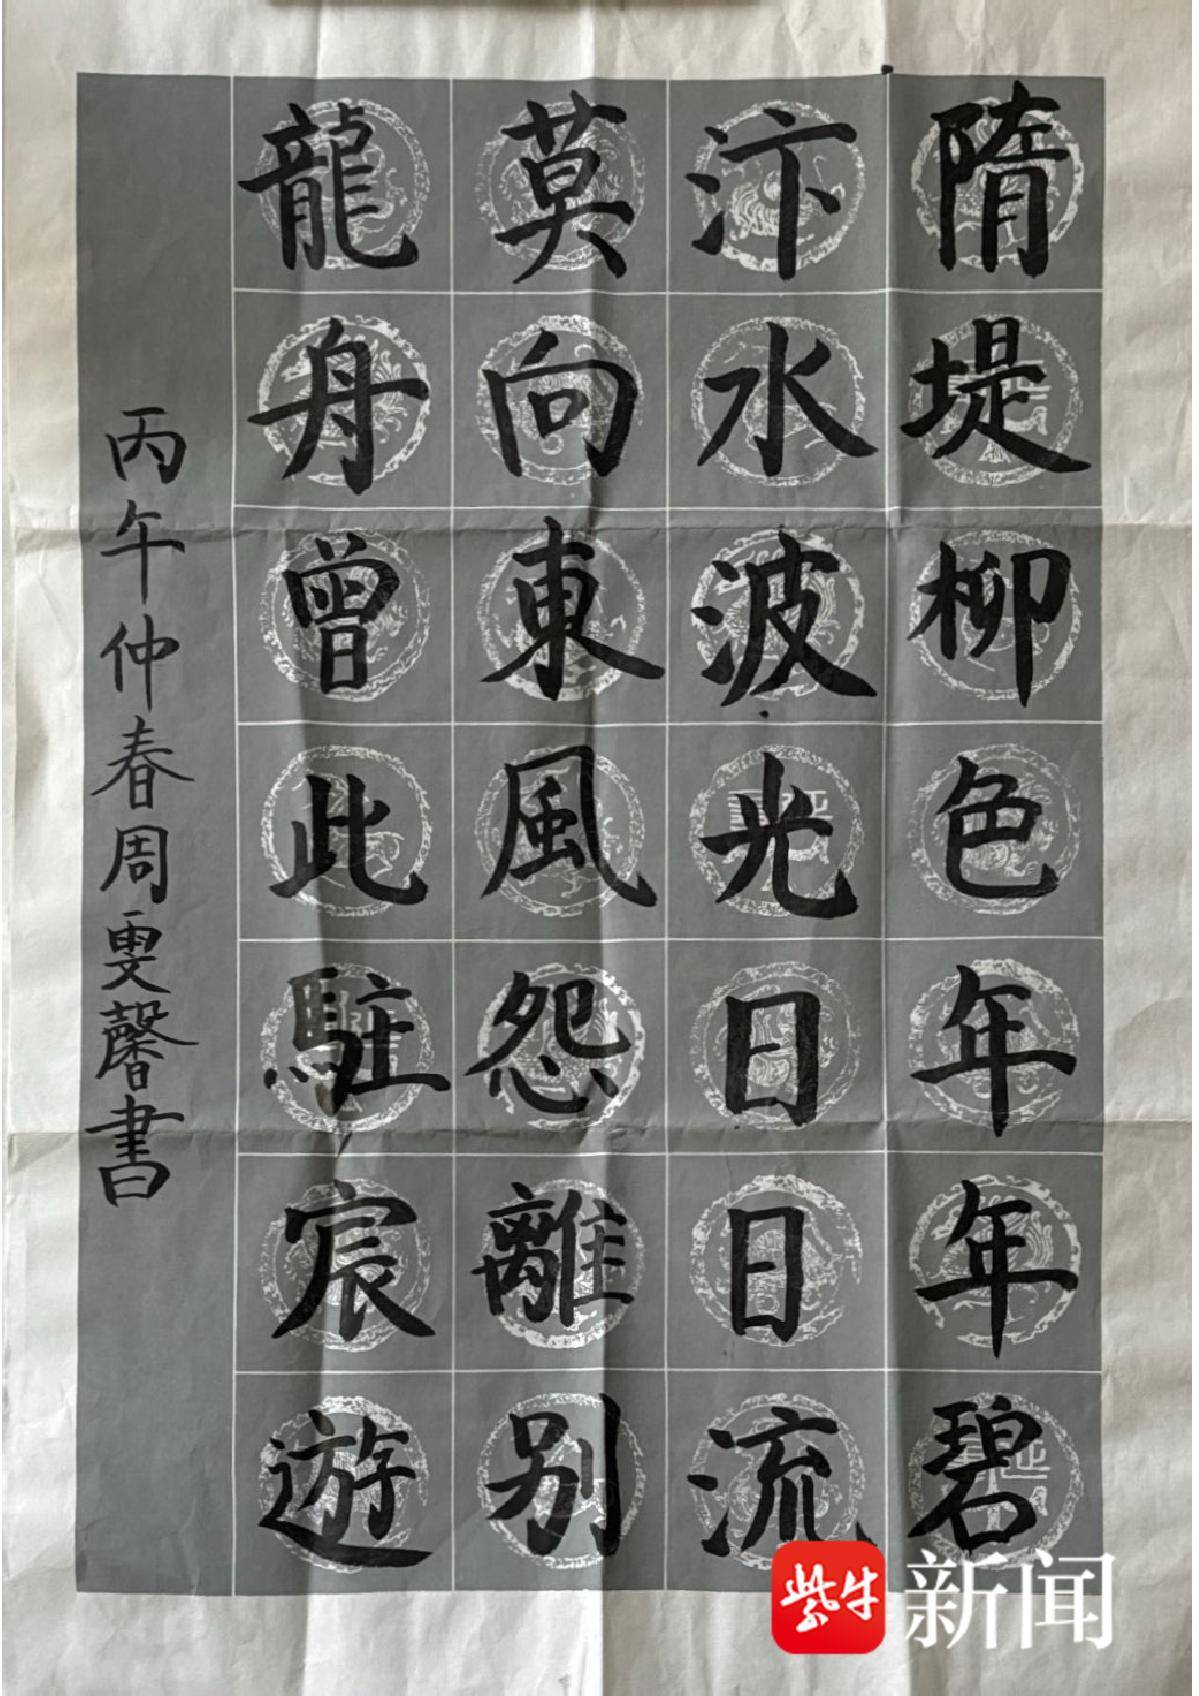 隋堤柳色年年碧
汴水波光日日流
莫向東風怨離别
龍舟曾此駐宸遊
丙午仲春周雯馨書
紫牛新闻